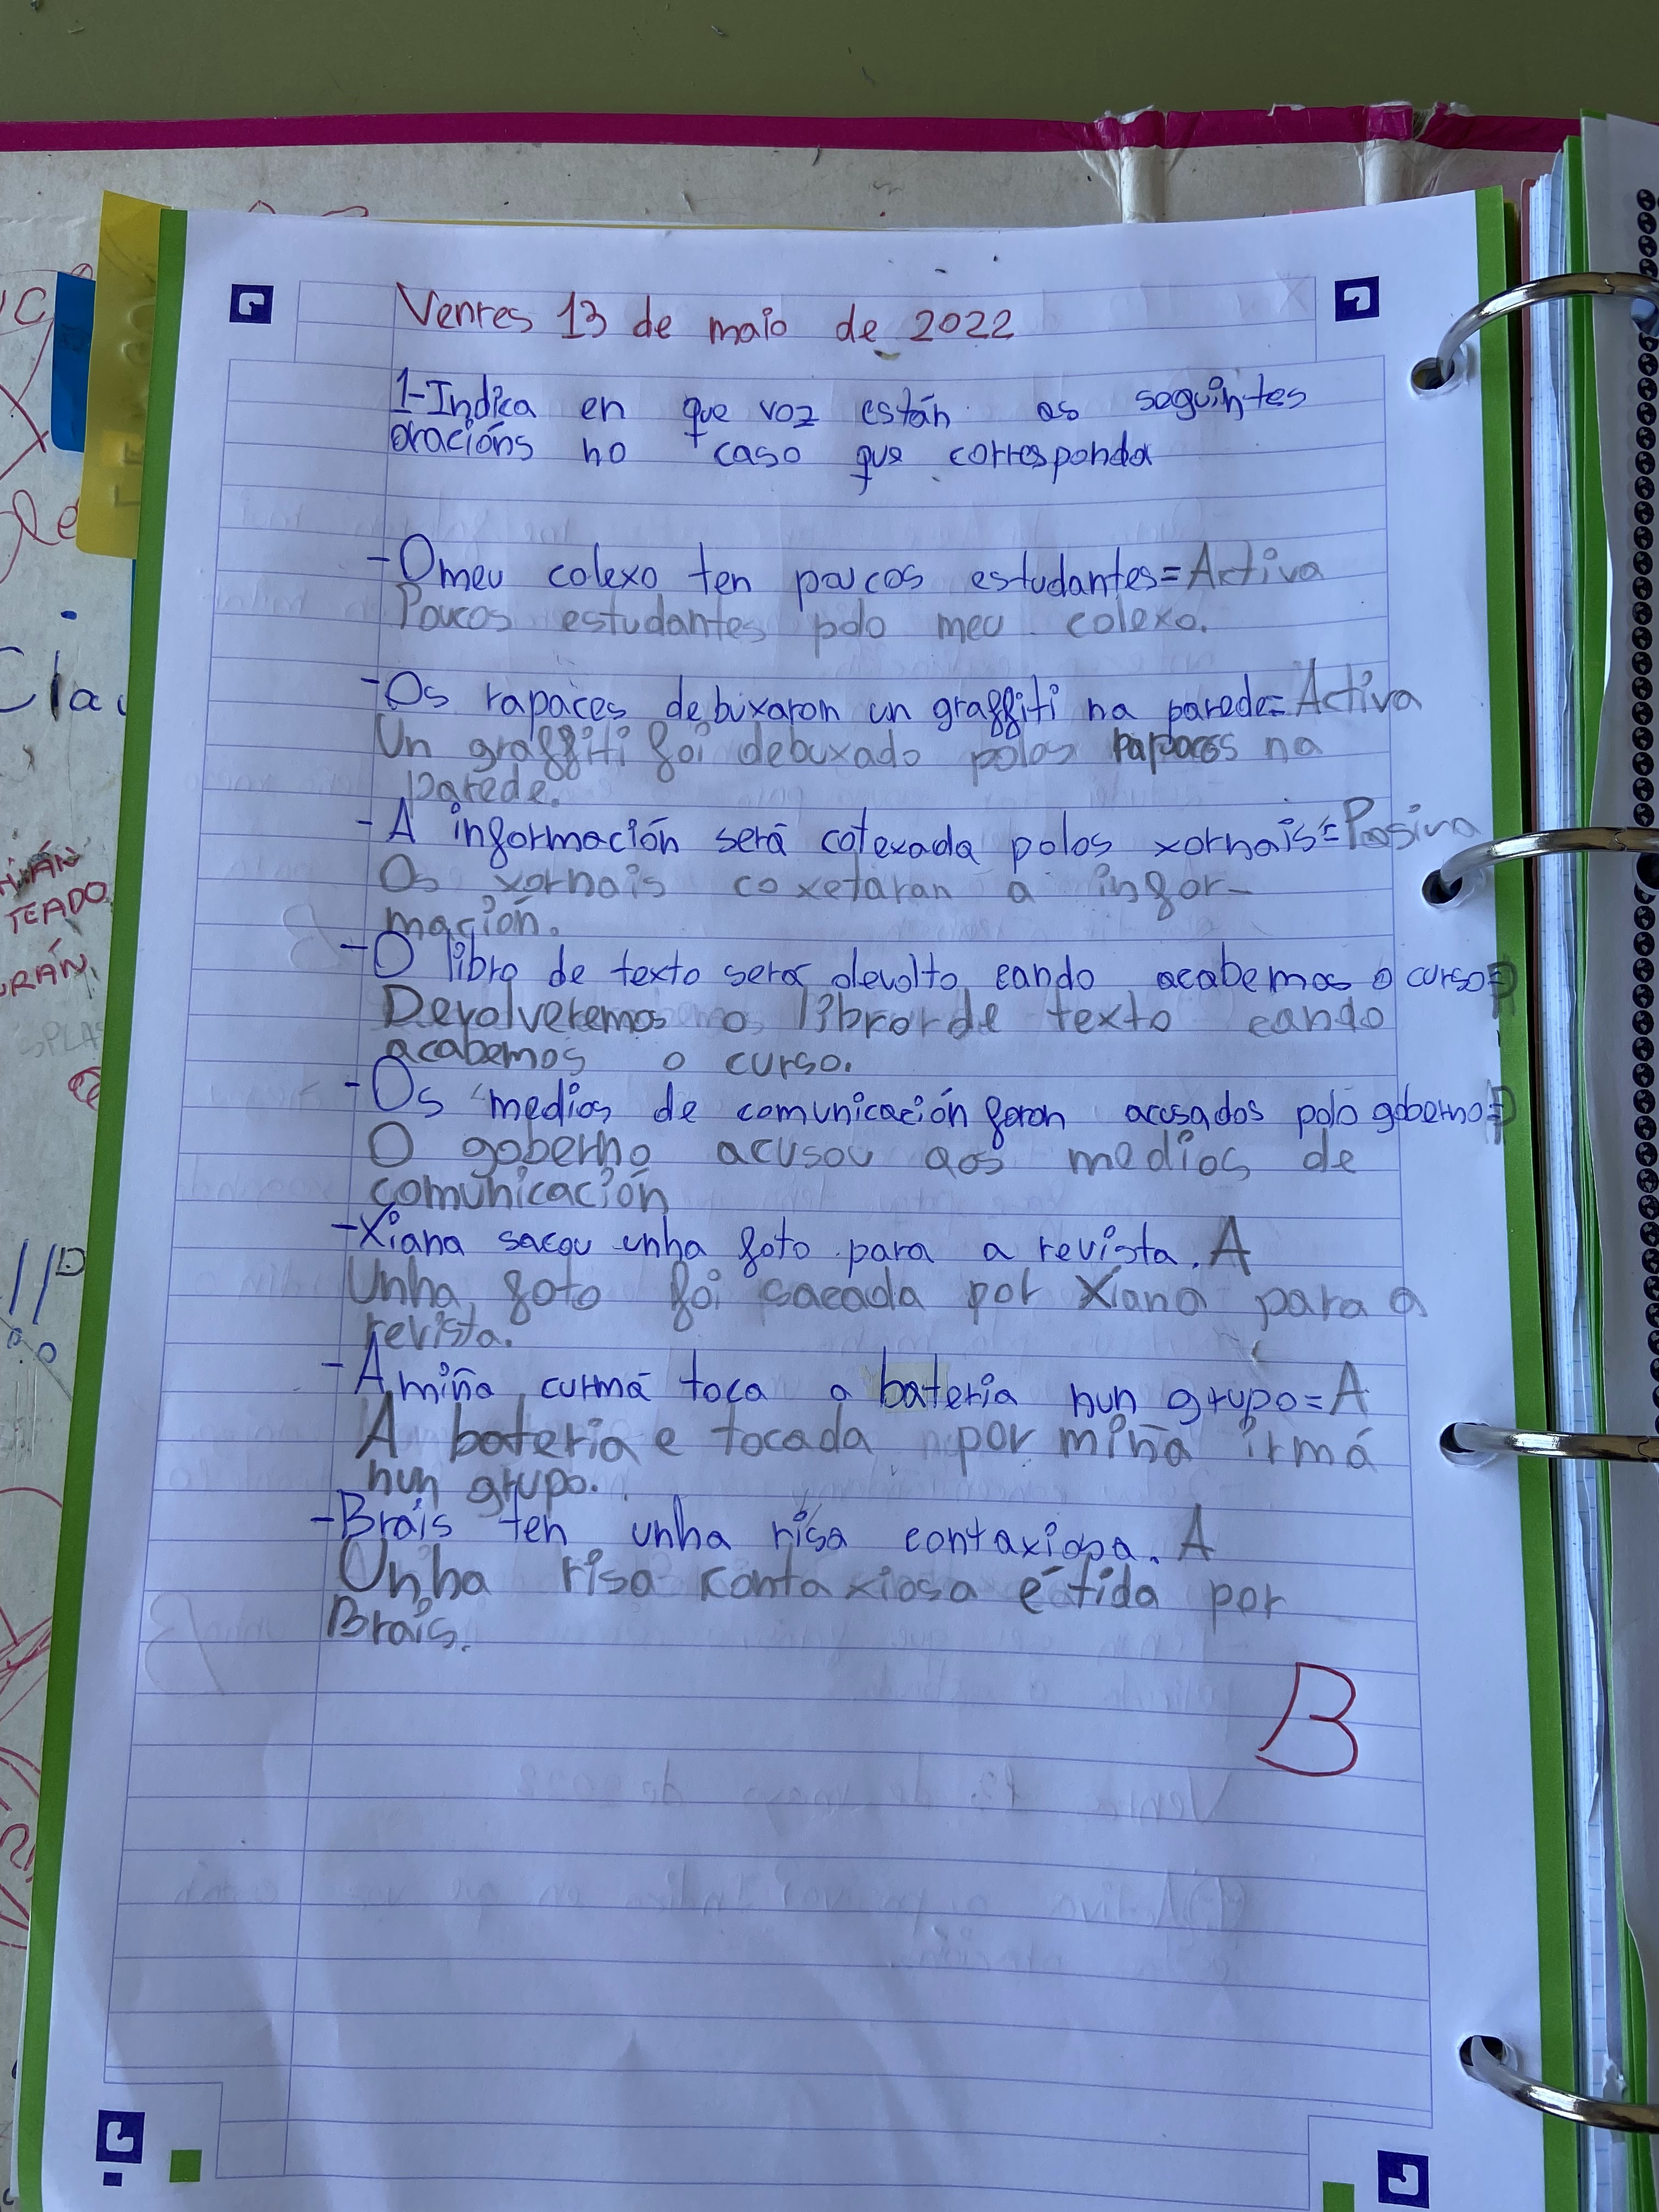 Venres 13 de maio de 2022
1-Indica en que voz están as seguintes
oracións no caso que corresponda
-O meu colexo ten poucos estudantes=Activa
Poucos estudantes polo meu colexo.
-Os rapaces debuxaron un graffiti na parede=Activa
Un graffiti foi debuxado polos rapaces na
parede.
-A información será cotexada polos xornais=Pasiva
Os xornais coxetaran a infor-
mación.
-O libro de texto será devolto cando acabemos o curso=P
Devolveremos o libro de texto cando
acabemos o curso.
-Os medios de comunicación foron acusados polo goberno=P
O goberno acusou aos medios de
comunicación
-Xiana sacou unha foto para a revista. A
Unha foto foi sacada por Xiana para a
revista.
-A miña curmá toca a bateria nun grupo=A
A bateria e tocada por miña irmá
nun grupo.
-Brais ten unha risa contaxiosa. A
Unha risa contaxiosa é tida por
Brais.
B
HÁN
TEADO
URÁN
SPLA
Cla